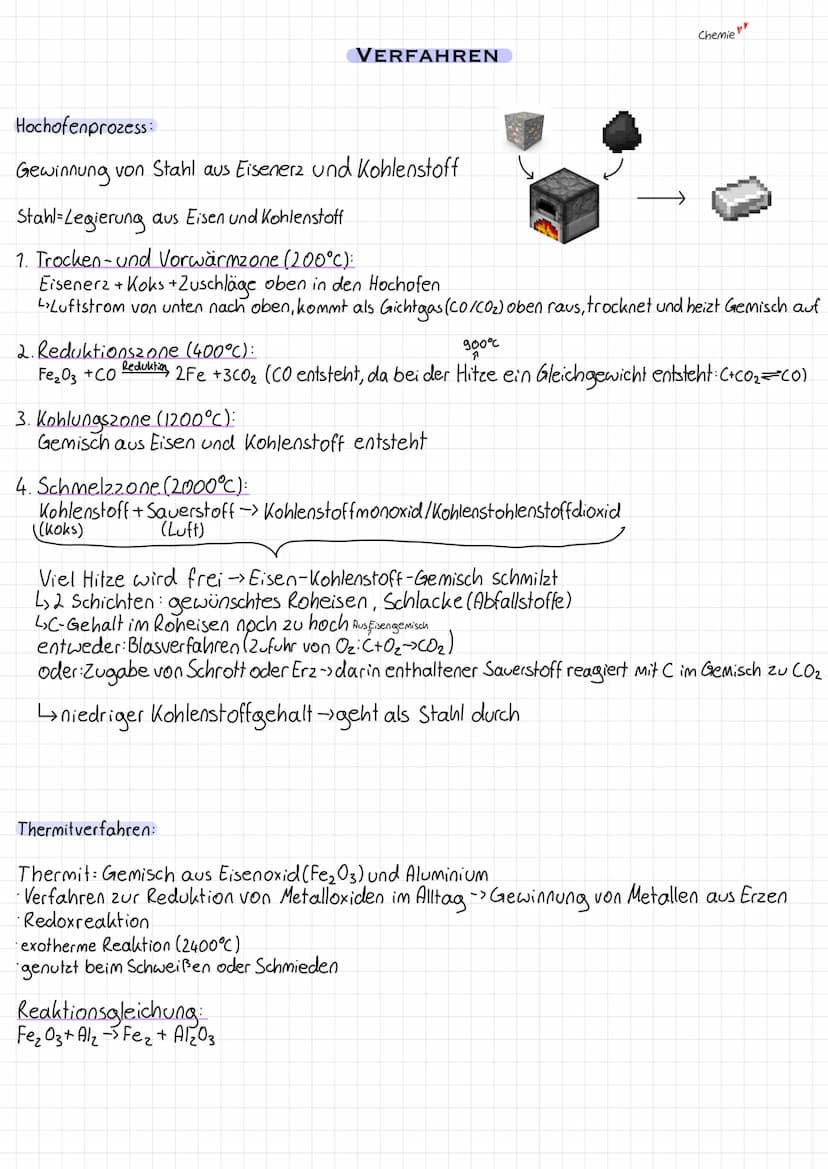 Chemie
VERFAHREN
Hochofenprozess:
Gewinnung von Stahl aus Eisenerz und Kohlenstoff
Stahl=Legierung aus Eisen und Kohlenstoff
1. Trocken- und Vorwärmzone (200°C):
Eisenerz + Koks + Zuschläge oben in den Hochofen
↳Luftstrom von unten nach oben, kommt als Gichtgas (CO/CO₂) oben raus, trocknet und heizt Gemisch auf
2. Reduktionszone (400°C):
900°C
Fe₂O₃ + CO Reduktion→ 2Fe + 3CO₂ (CO entsteht, da bei der Hitze ein Gleichgewicht entsteht: C+CO₂⇌CO)
3. Kohlungszone (1200°C):
Gemisch aus Eisen und Kohlenstoff entsteht
4. Schmelzzone (2000°C):
Kohlenstoff + Sauerstoff -> Kohlenstoffmonoxid/Kohlenstohlenstoffdioxid
(Koks) (Luft)
Viel Hitze wird frei → Eisen-Kohlenstoff-Gemisch schmilzt
↳ 2 Schichten: gewünschtes Roheisen, Schlacke (Abfallstoffe)
↳C-Gehalt im Roheisen noch zu hoch Aus Eisengemisch
entweder: Blasverfahren (Zufuhr von O₂: C+O₂→CO₂)
oder: Zugabe von Schrott oder Erz -> darin enthaltener Sauerstoff reagiert mit C im Gemisch zu CO₂
↳niedriger Kohlenstoffgehalt → geht als Stahl durch
Thermitverfahren:
Thermit: Gemisch aus Eisenoxid (Fe₂O₃) und Aluminium
· Verfahren zur Reduktion von Metalloxiden im Alltag -> Gewinnung von Metallen aus Erzen
· Redoxreaktion
· exotherme Reaktion (2400°C)
· genutzt beim Schweißen oder Schmieden
Reaktionsgleichung:
Fe₂O₃ + Al₂ -> Fe₂ + Al₂O₃